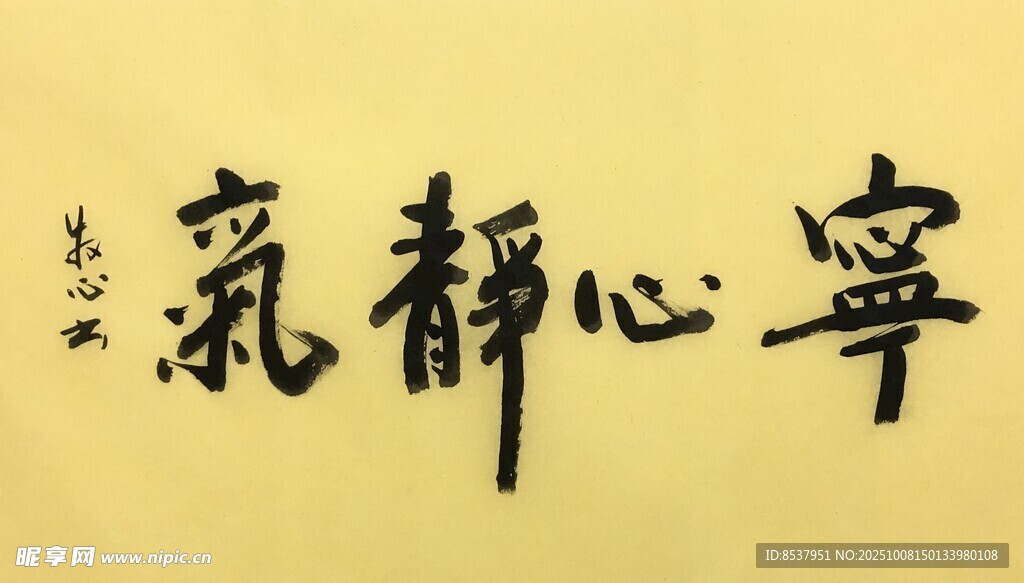 寧心靜氣
牧心书
昵享网 www.nipic.cn
ID:8537951 NO:20251008150133980108